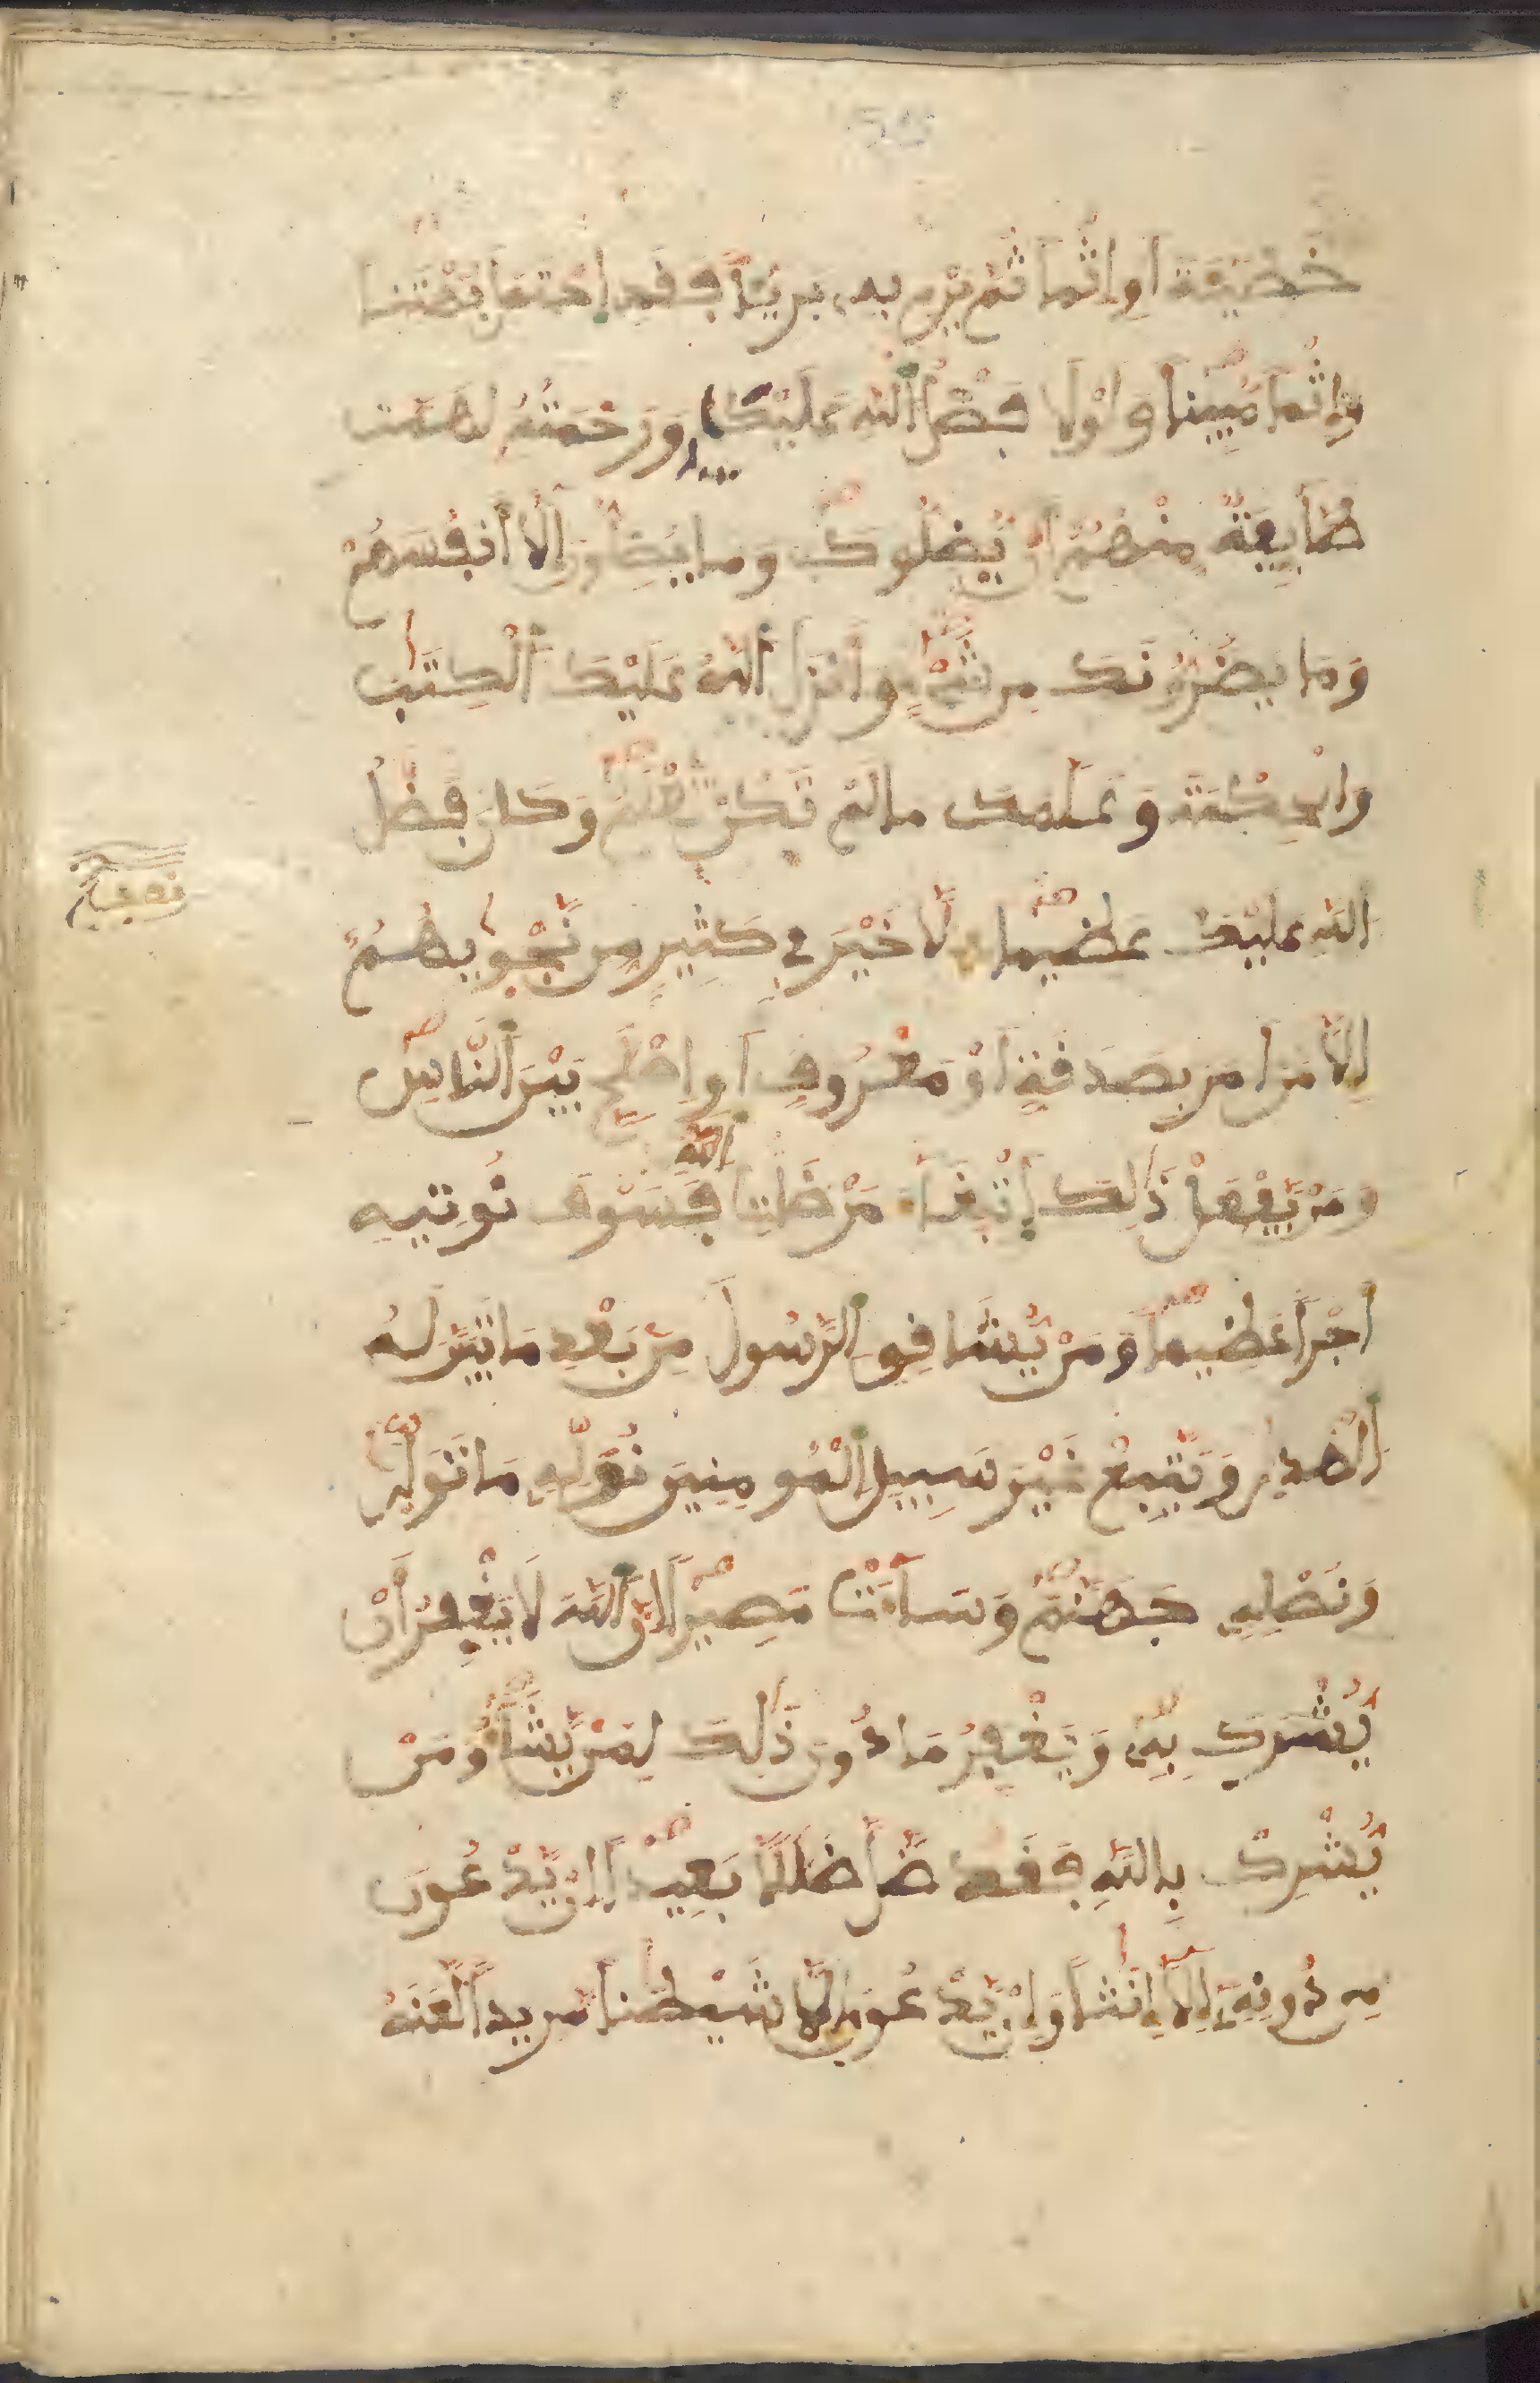 خَطِيَّةً اَوِ اثْما ثُمَّ يَرْمِ بِهِ بَرِئًا فَقَدِ اِحْتَمَلَ بُهْتَنا
وَإِثْماً مُّبِيناً وَلَوْلَا فَضْلُ اُللَّهِ عَلَيْكَ وَرَحْمَتُهُ لَهَمَّت
طَّآيِفَةٌ مِّنْهُمُ أَنْ يُّضِلُّوكَ وَمَا يُضِلُّونَ إِلَّا أَنفُسَهُمْ
وَمَا يَضُرُّونَكَ مِن شَيْءٍ وَأَنزَلَ اَللَّهُ عَلَيْكَ اَلْكِتَٰبَ
وَالْحِكْمَةَ وَعَلَّمَكَ مَا لَمْ تَكُن تَعْلَمُ وَكَانَ فَضْلُ
اَللَّهِ عَلَيْكَ عَظِيماً لَّا خَيْرَ فِي كَثِيرٍ مِّن نَّجْوٰيهُمُ
إِلَّا مَنَ اَمَرَ بِصَدَقَةٍ اَوْ مَعْرُوفٍ اَوِ اِصْلَٰحٍ بَيْنَ اَلنَّاسِ
وَمَنْ يَّفْعَلْ ذَٰلِكَ اَبْتِغَآءَ مَرْضَاتِ اللَّهِ فَسَوْفَ نُوتِيهِ
أَجْراً عَظِيماً وَمَنْ يُّشَاقِقِ اِلرَّسُولَ مِنۢ بَعْدِ مَا تَبَيَّنَ لَهُ
اَلْهُدٰى وَيَتَّبِعْ غَيْرَ سَبِيلِ اِلْمُومِنِينَ نُوَلِّهِ مَا تَوَلّٰى
وَنُصْلِهِ جَهَنَّمَ وَسَآءَتْ مَصِيراً إِنَّ اَللَّهَ لَا يَغْفِرُ أَنْ
يُّشْرَكَ بِهِ وَيَغْفِرُ مَا دُونَ ذَٰلِكَ لِمَنْ يَّشَآءُ وَمَنْ
يُّشْرِكْ بِاللَّهِ فَقَد ضَّلَّ ضَلَٰلاً بَعِيداً اِنْ يَّدْعُونَ
مِن دُونِهِ إِلَّا إِنَٰثاً وَإِنْ يَّدْعُونَ إِلَّا شَيْطَٰناً مَّرِيداً لَّعَنَهُ